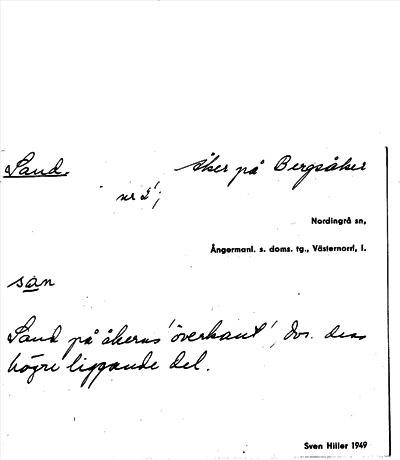 Sand. åker på Bergsåker
nr 2;
Nordingrå sn,
Ångermanl. s. doms. tg., Västernorrl. l.
san
Sand på åkerns 'överkant', dvs. dess
högre liggande del.
Sven Hiller 1949